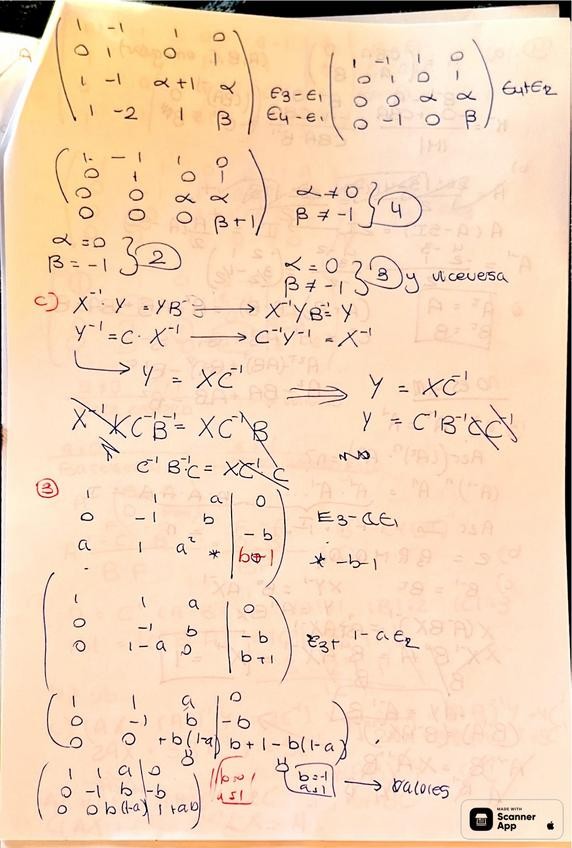 A
1 -1 1 0
0 1 0 1
1 -1 α+1 α
1 -2 1 β
E3-E1
E4-E1
1 -1 1 0
0 1 0 1
0 0 α α
0 -1 0 β
E4+E2
1 -1 1 0
0 1 0 1
0 0 α α
0 0 0 β+1
α≠0
β≠-1 } 4
α=0
β=-1 } 2
α=0
β≠-1 } 3 y viceversa
c) X⁻¹·Y = YB⁻¹ → X⁻¹YB⁻¹=Y
Y⁻¹=C·X⁻¹ → C⁻¹Y⁻¹=X⁻¹
Y = XC⁻¹ ⟹ Y = XC⁻¹
X⁻¹XC⁻¹B⁻¹= XC⁻¹B
Y = C⁻¹B⁻¹CC⁻¹
C⁻¹B⁻¹C= XC⁻¹C
3
1 1 a | 0
0 -1 b | -b
a 1 a² * | b+1
E3-aE1
* -b-1
1 1 a | 0
0 -1 b | -b
0 1-a 0 | b+1
E3+ 1-a E2
1 1 a | 0
0 -1 b | -b
0 0 +b(1-a) | b+1-b(1-a)
1 1 a | 0
0 -1 b | -b
0 0 b(1-a) | 1+ab
b=-1
a=1
→ valores
MADE WITH
Scanner
App